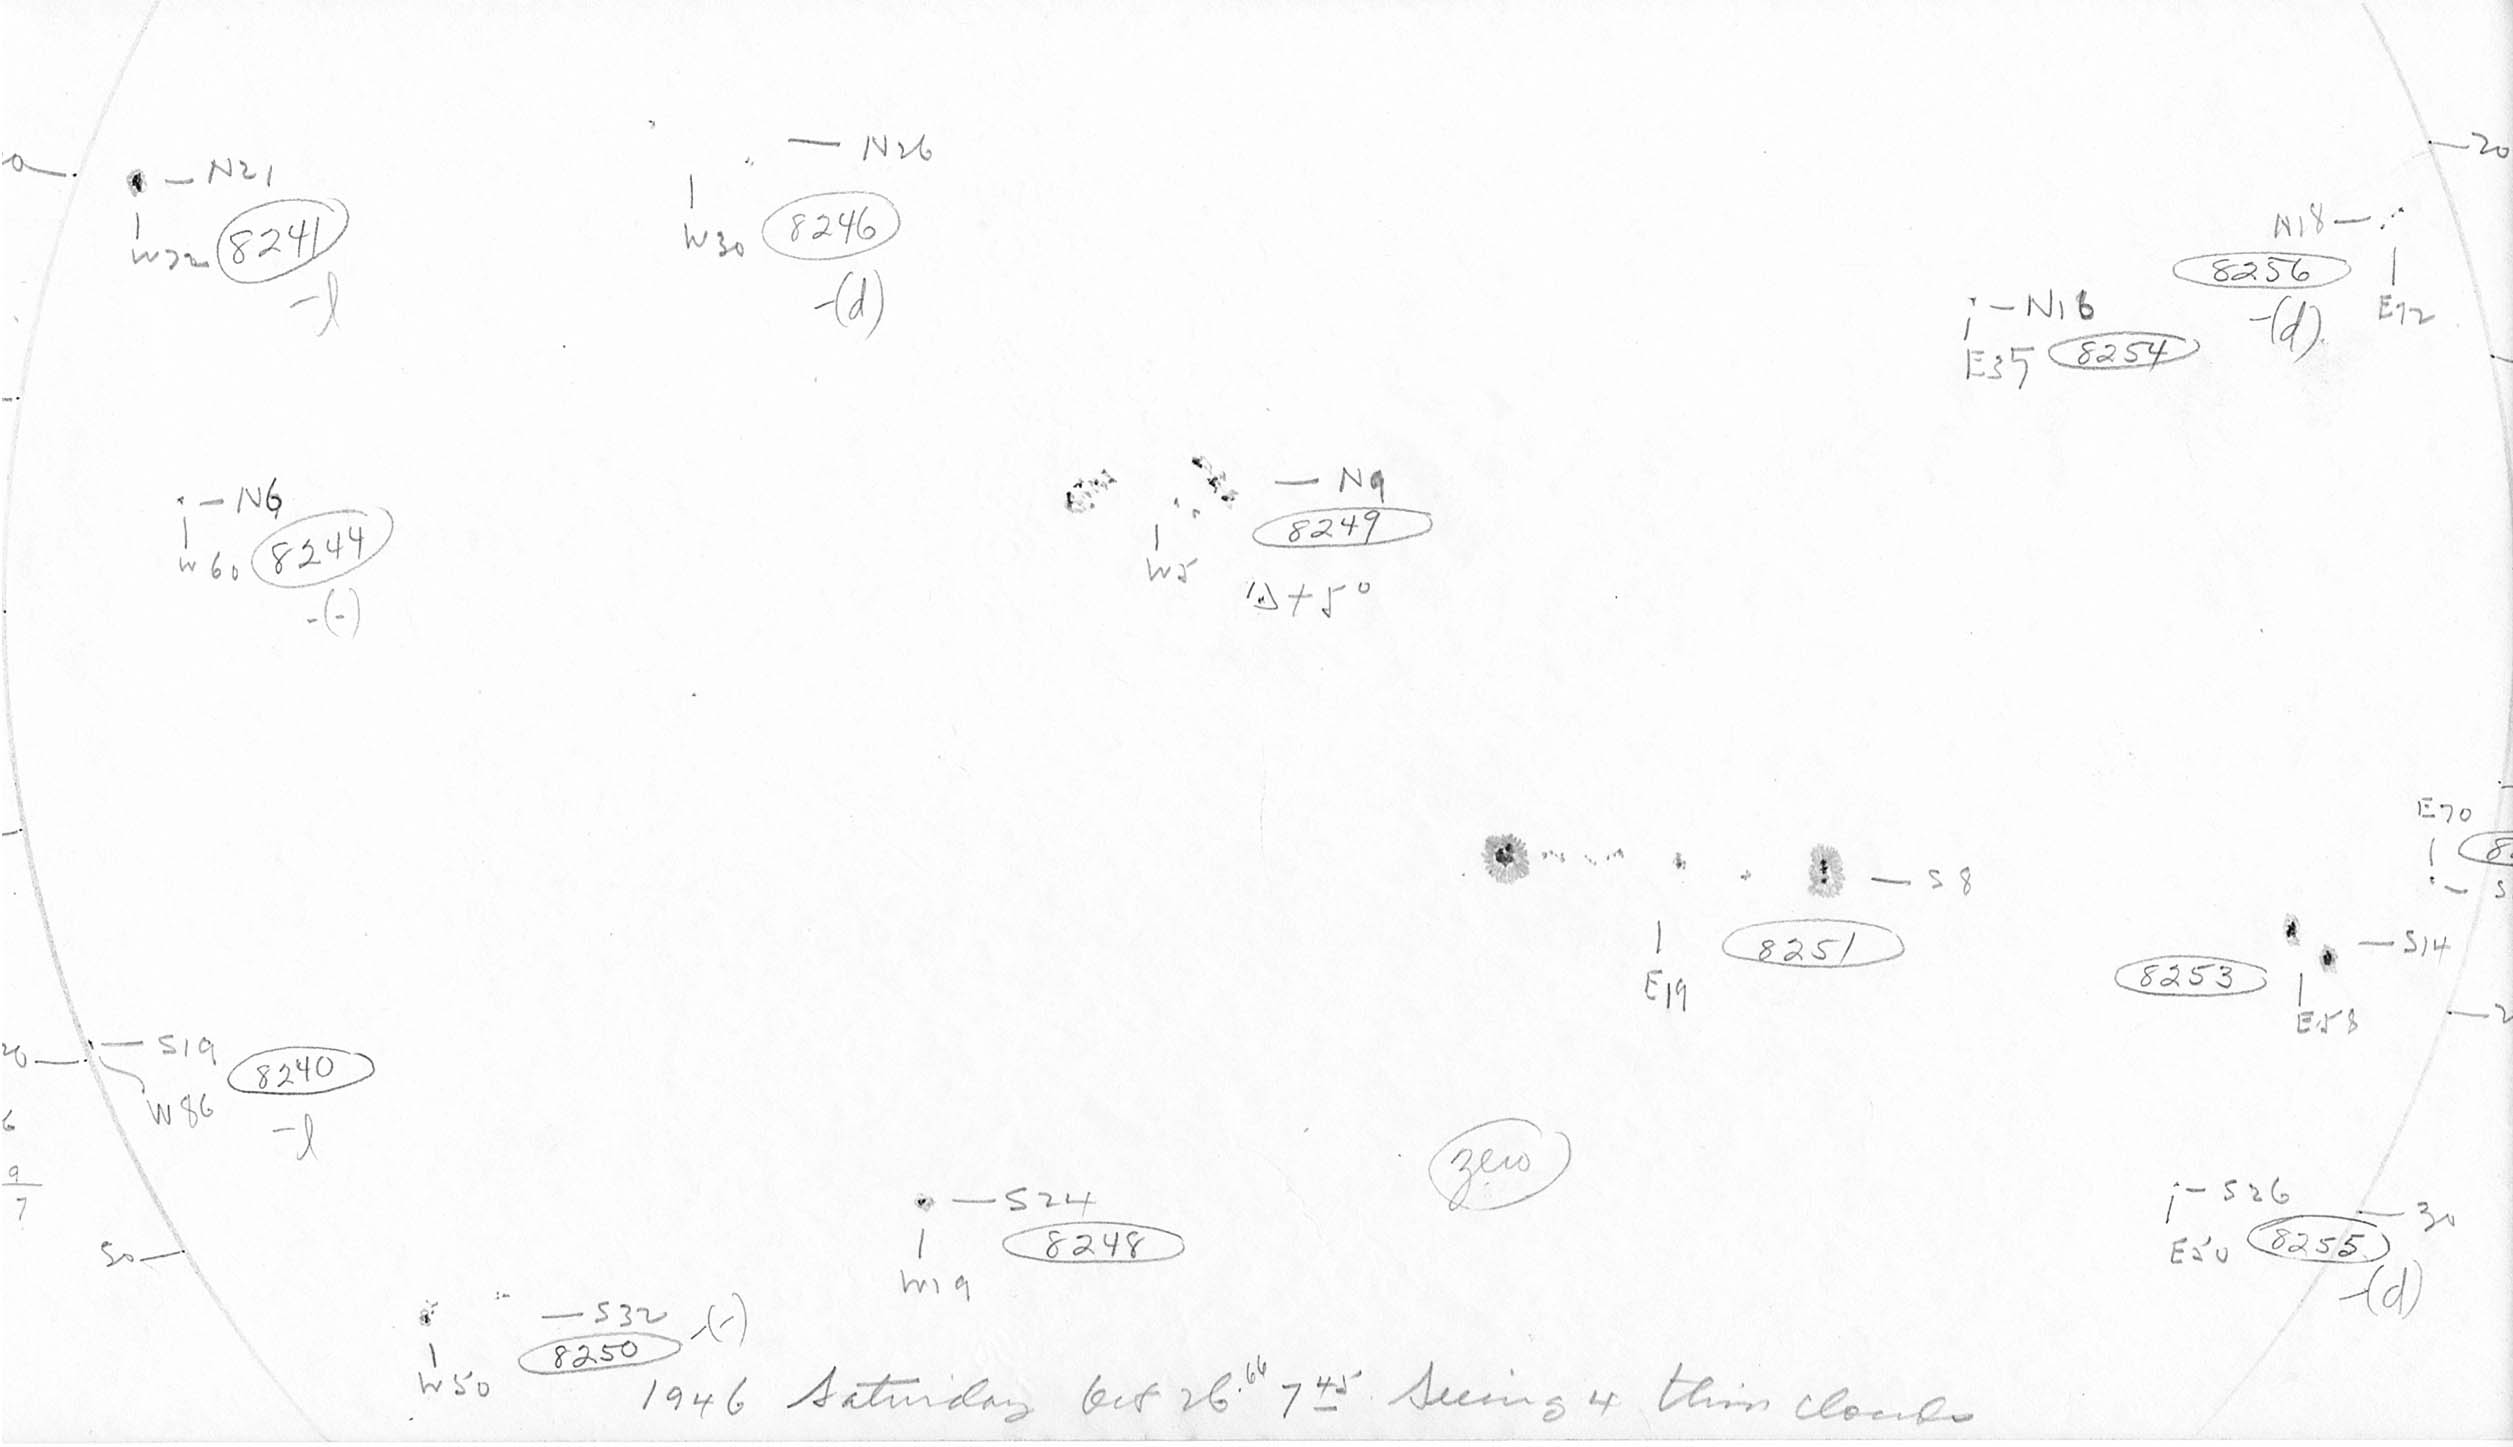 N26
20
N21
N18
W72 8241
W30 8246
8256
-l
-(d)
-(d) E72
N16
E35 8254
N6
N9
8249
W60 8244
W5
-(-)
+5°
E70
S8
8251
S14
E19
8253
E58
S19
8240
W86
-l
6
9
7
zero
S24
8248
S26
30
W19
E50 8255
-(d)
S32 -(-)
8250
W50
1946 Saturday Oct 26.66 7 45 Seeing 4 thin clouds